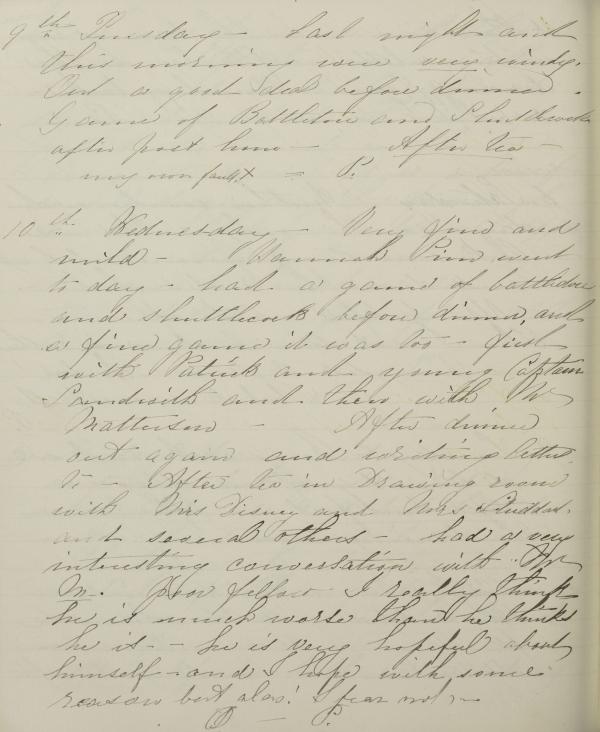 9th Tuesday - Last night and
this morning were very windy.
Out a good deal before dinner.
Game of Battledore and Shuttlecock
after post time - After tea -
my own fault = P.
10th Wednesday - Very fine and
mild - Hannah Pim went
to day - had a game of battledore
and shuttlecock before dinner, and
a fine game it was too - first
with Patrick and young Captain
Sandwith and then with Mr
Matterson - After dinner
out again and writing letters
to - After tea in Drawing room
with Mrs Disney and Mrs Studdart
and several others - had a very
interesting conversation with Mr
M. Poor fellow I really think
he is much worse than he thinks
he is - he is very hopeful about
himself - and I hope with some
reason but alas! I fear not -
P.